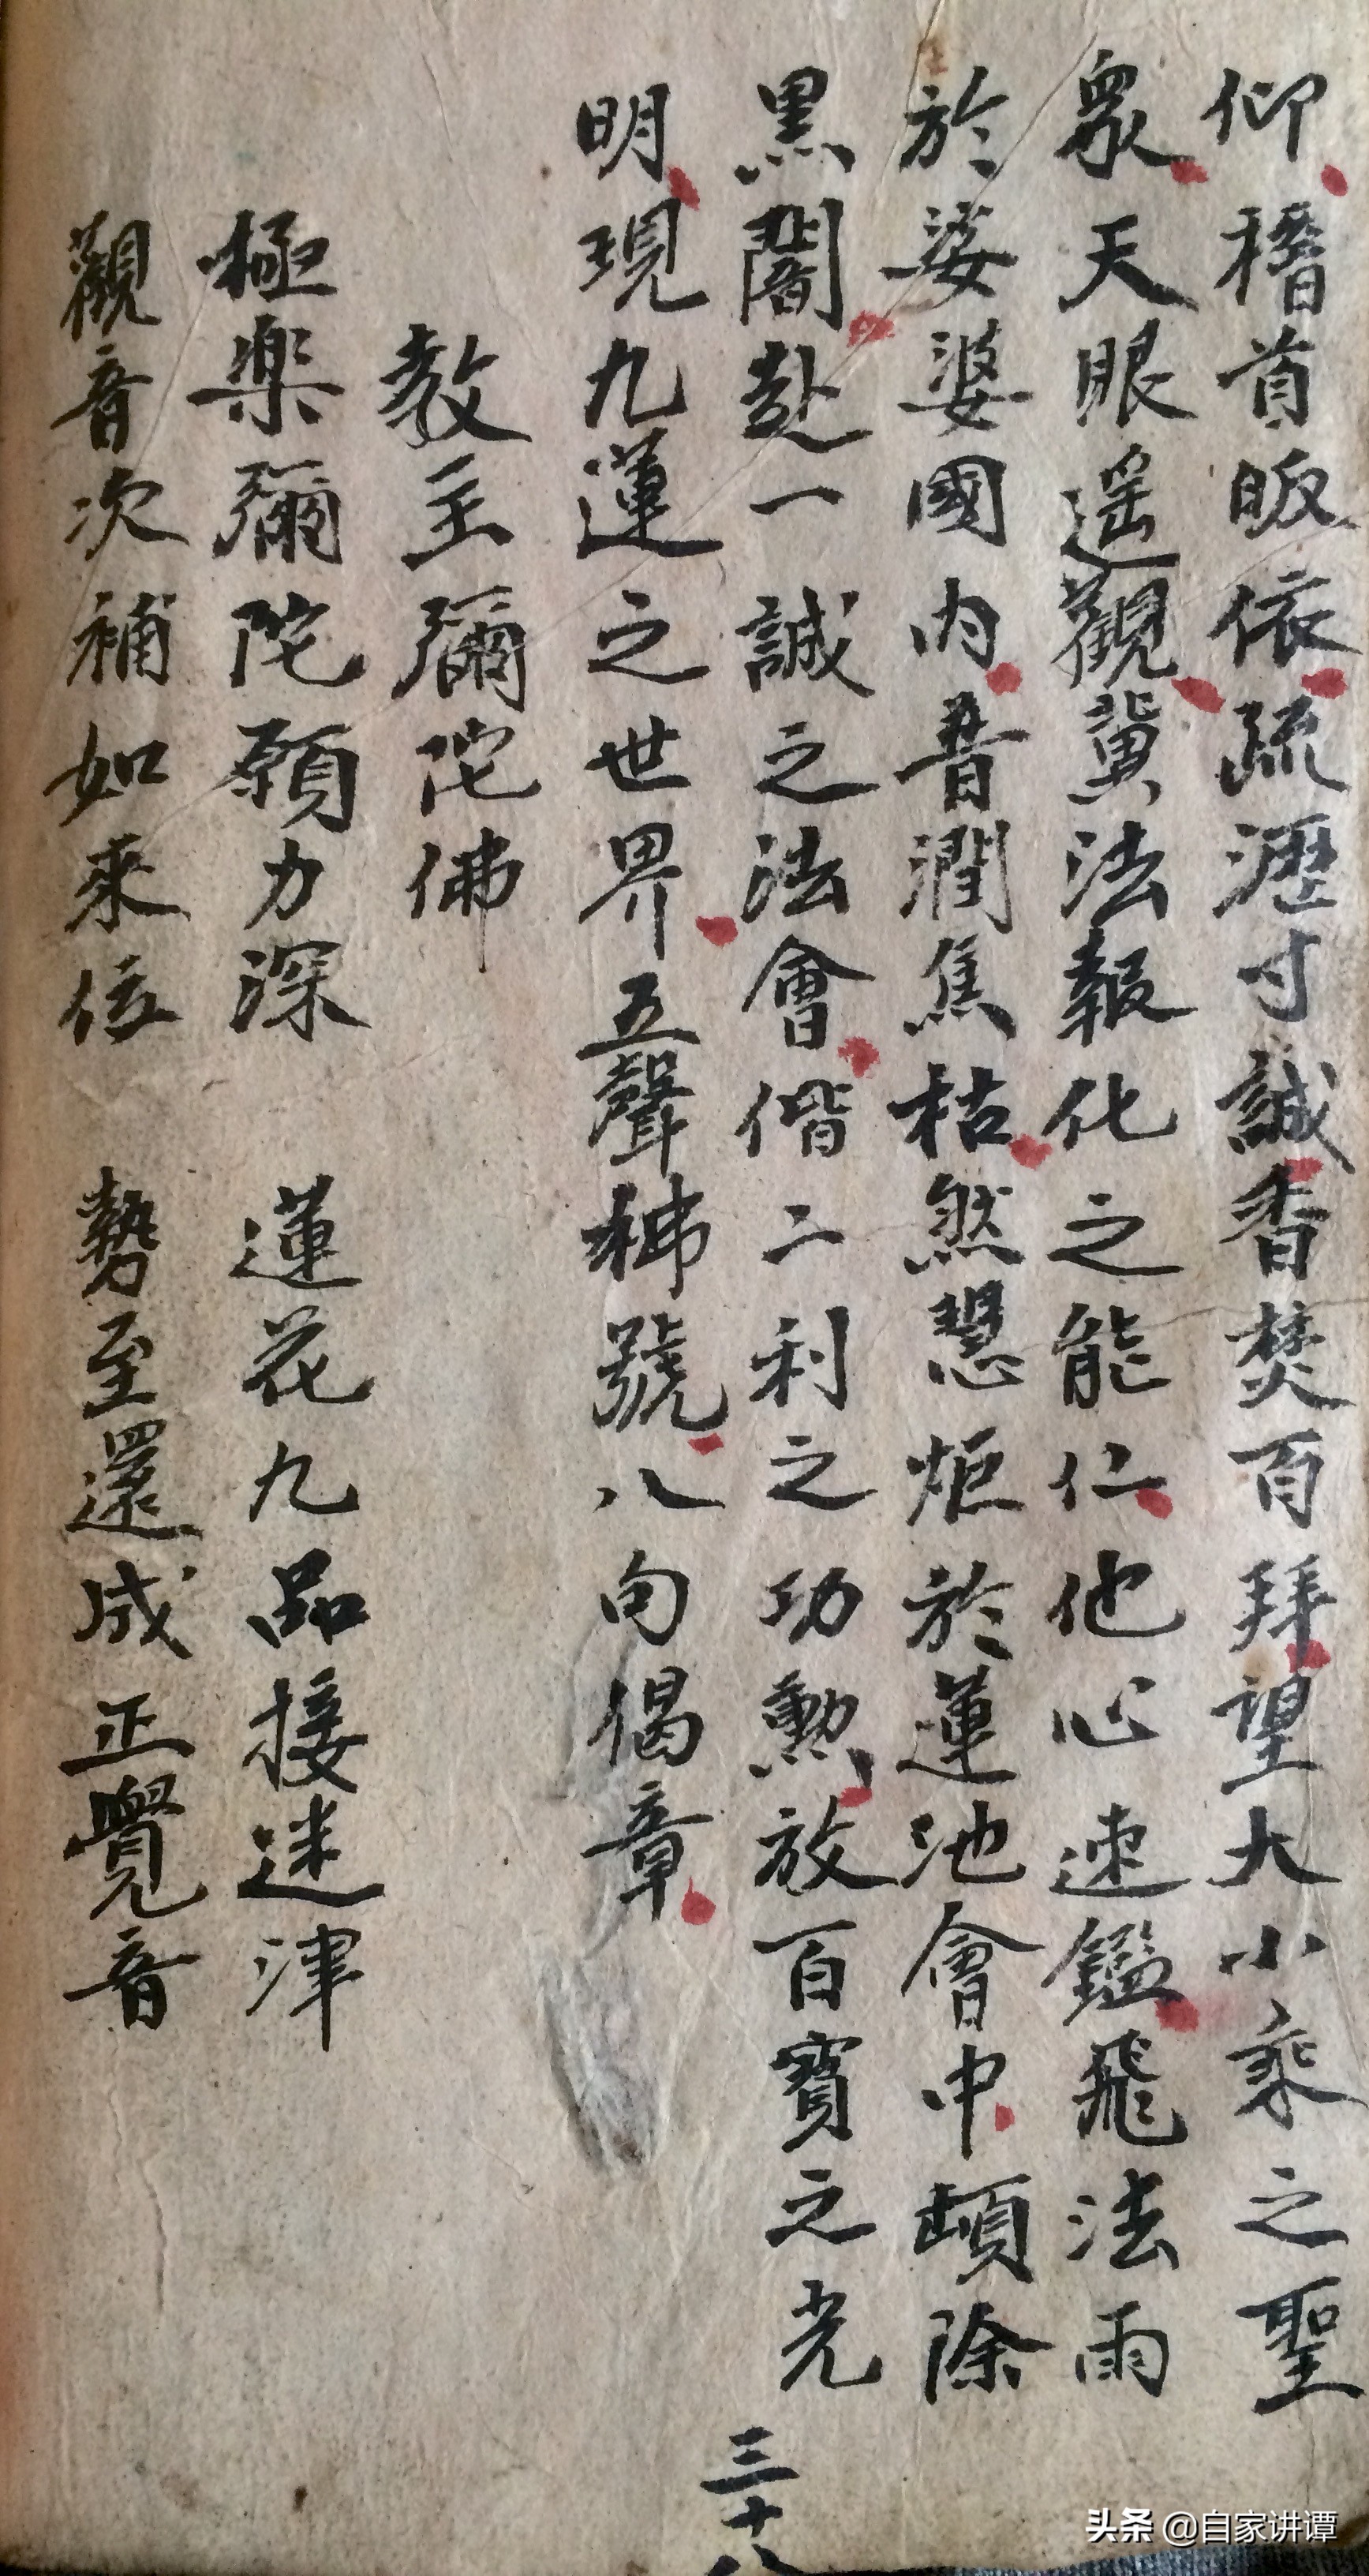 仰稽首皈依疏瀝寸誠香焚百拜望大小乘之聖
衆天眼遥觀冀法報化之能仁他心速鑑飛法雨
於娑婆國內普潤焦枯然慧炬於蓮池會中頓除
黑闇赴一誠之法會偕二利之功勲放百寳之光
明現九蓮之世界五聲稀號八句偈章
教主彌陀佛
極楽彌陀願力深 蓮花九品接迷津
觀音次補如来位 勢至還成正覺音
三十八
头条 @自家讲谭